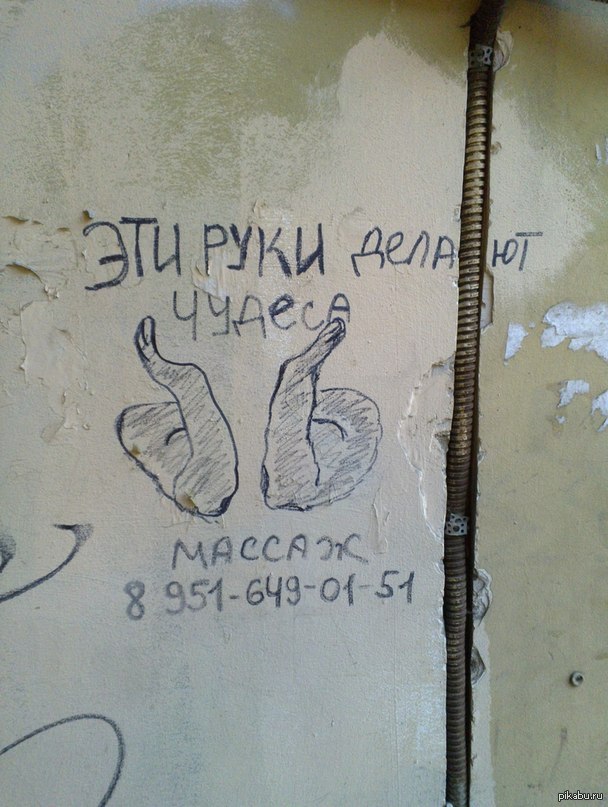 ЭТИ РУКИ делают
чудеса
МАССАЖ
8 951-649-01-51
pikabu.ru